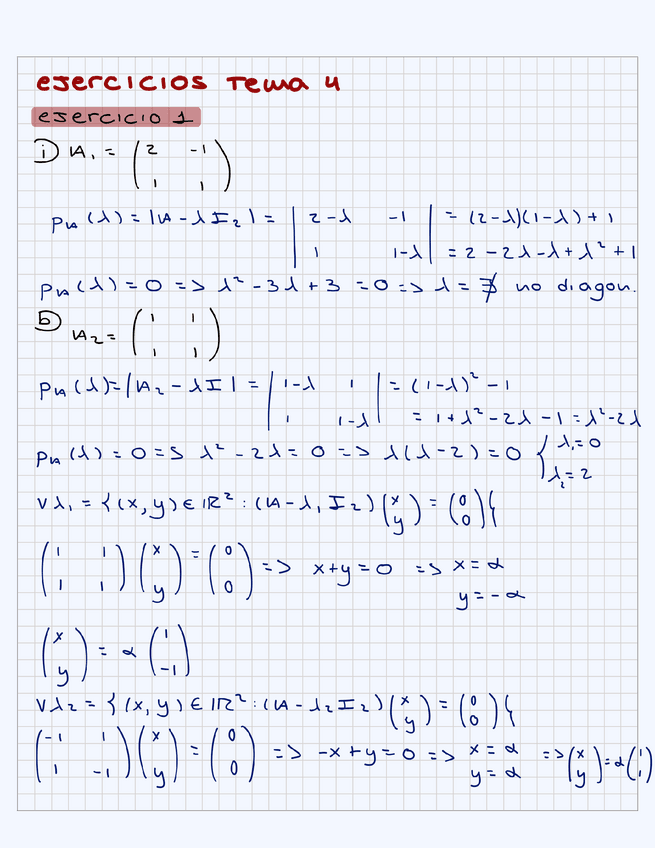 ejercicios Tema 4
ejercicio 1
i) A₁ = ( 2 -1 ; 1 1 )
P_A (λ) = |A - λ I₂| = | 2-λ -1 ; 1 1-λ | = (2-λ)(1-λ) + 1
= 2 - 2λ - λ + λ² + 1
P_A (λ) = 0 => λ² - 3λ + 3 = 0 => λ = ∄ no diagon.
b) A₂ = ( 1 1 ; 1 1 )
P_A (λ) = |A₂ - λI| = | 1-λ 1 ; 1 1-λ | = (1-λ)² - 1
= 1 + λ² - 2λ - 1 = λ² - 2λ
P_A (λ) = 0 => λ² - 2λ = 0 => λ(λ-2) = 0 { λ₁ = 0
λ₂ = 2
Vλ₁ = {(x, y) ∈ ℝ² : (A - λ₁ I₂) ( x ; y ) = ( 0 ; 0 ) }
( 1 1 ; 1 1 ) ( x ; y ) = ( 0 ; 0 ) => x + y = 0 => x = α
y = -α
( x ; y ) = α ( 1 ; -1 )
Vλ₂ = {(x, y) ∈ ℝ² : (A - λ₂ I₂) ( x ; y ) = ( 0 ; 0 ) }
( -1 1 ; 1 -1 ) ( x ; y ) = ( 0 ; 0 ) => -x + y = 0 => x = α
y = α => ( x ; y ) = α ( 1 ; 1 )